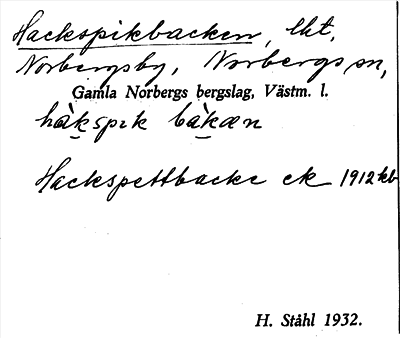 Hackspikbacken, lht,
Norbergsby, Norbergs sn,
Gamla Norbergs bergslag, Västm. l.
hàkspɩk bàkæn
Hackspettbacke ek 1912 kb
H. Ståhl 1932.